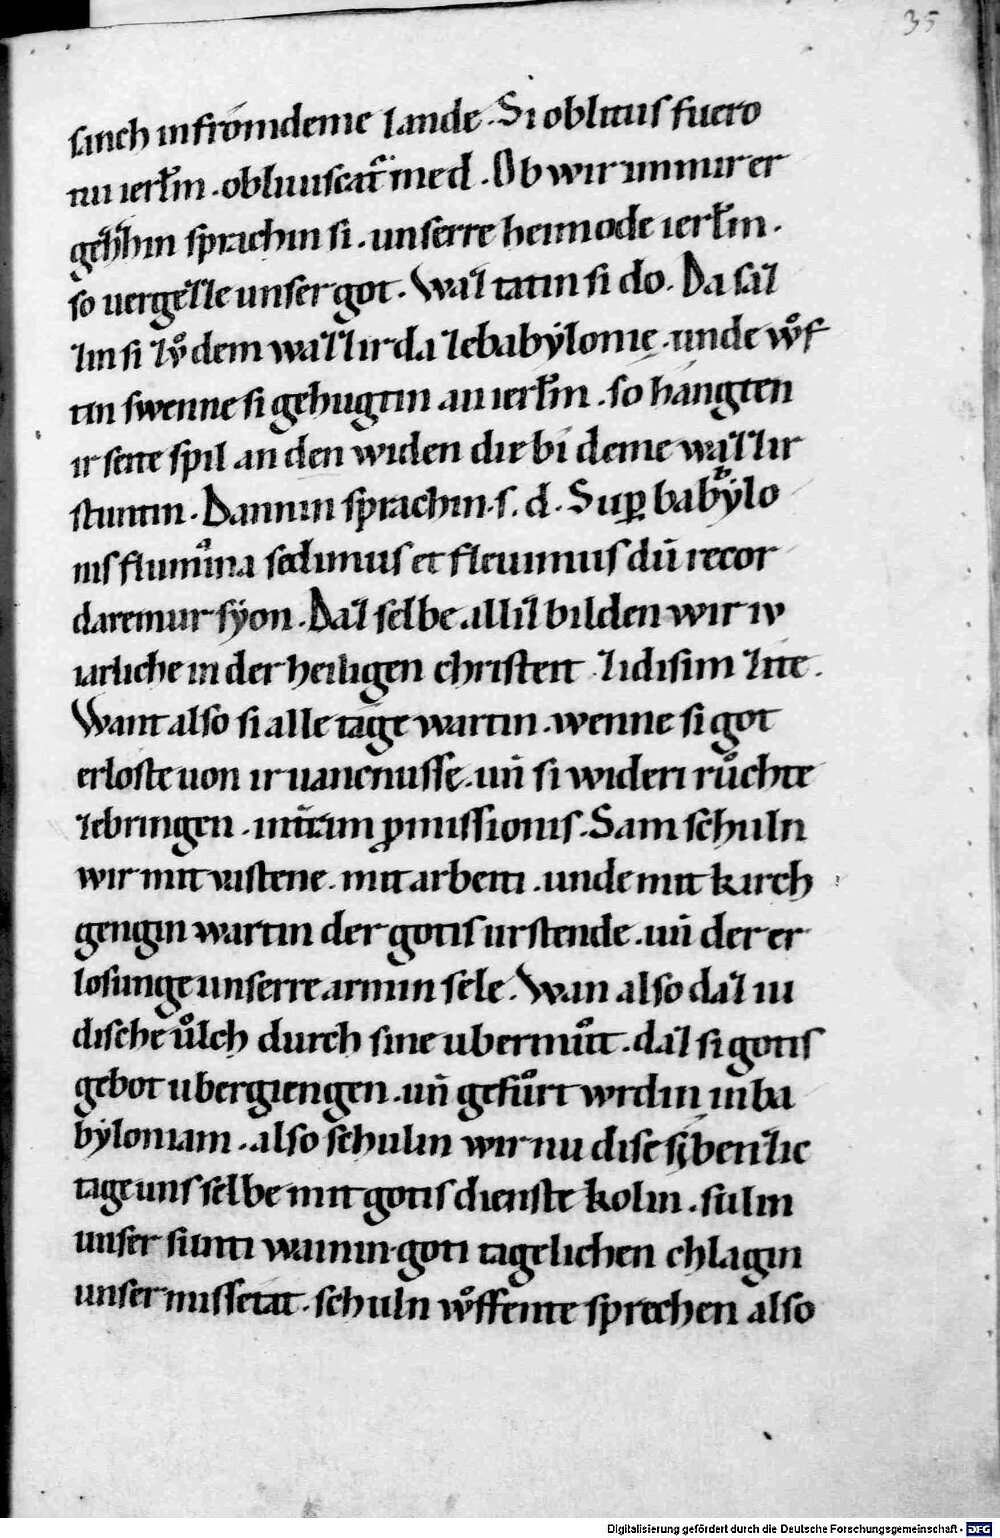 35
sanch in frömdeme lande. Si oblitus fuero
tui ierłm. obliuiscat᷑ me d. Ob wir immir er
gezhin sprachin si. unserre heimode ierłm.
so uergezze unser got. Waz tatin si do. Da saz
zin si zv̊ dem wazzir da zebabẏlonie. unde wͦf
tin swenne si gehugtin an ierłm. so hangten
ir seite spil an den widen die bi deme wazzir
stuntin. Dannin sprachin. s. d. Suꝑ babẏlo
nis flumina sedimus et fleuimus dū recor
daremur sẏon. Daz selbe alliz bilden wir iv
iarliche in der heiligen christeit zidisim zite.
Want also si alle tage wartin. wenne si got
erloste uon ir uancnusse. uñ si wideri růchte
zebringen. in t̄ram ꝓmissionis. Sam schuln
wir mit vastene. mit arbeiti. unde mit kirch
gengin wartin der gotis urstende. uñ der er
losunge unserre armin sele. Wan also daz iu
dische uͦlch durch sine ubermůt. daz si gotis
gebot ubergiengen. uñ gefůrt wrdin in ba
bẏloniam. also schulin wir nu dise sibenzic
tage uns selbe mit gotis dienste kolin. suln
unser sunti wainin goti tagelichen chlagin
unser missetat. schuln wͦffente sprechen also
Digitalisierung gefördert durch die Deutsche Forschungsgemeinschaft - DFG